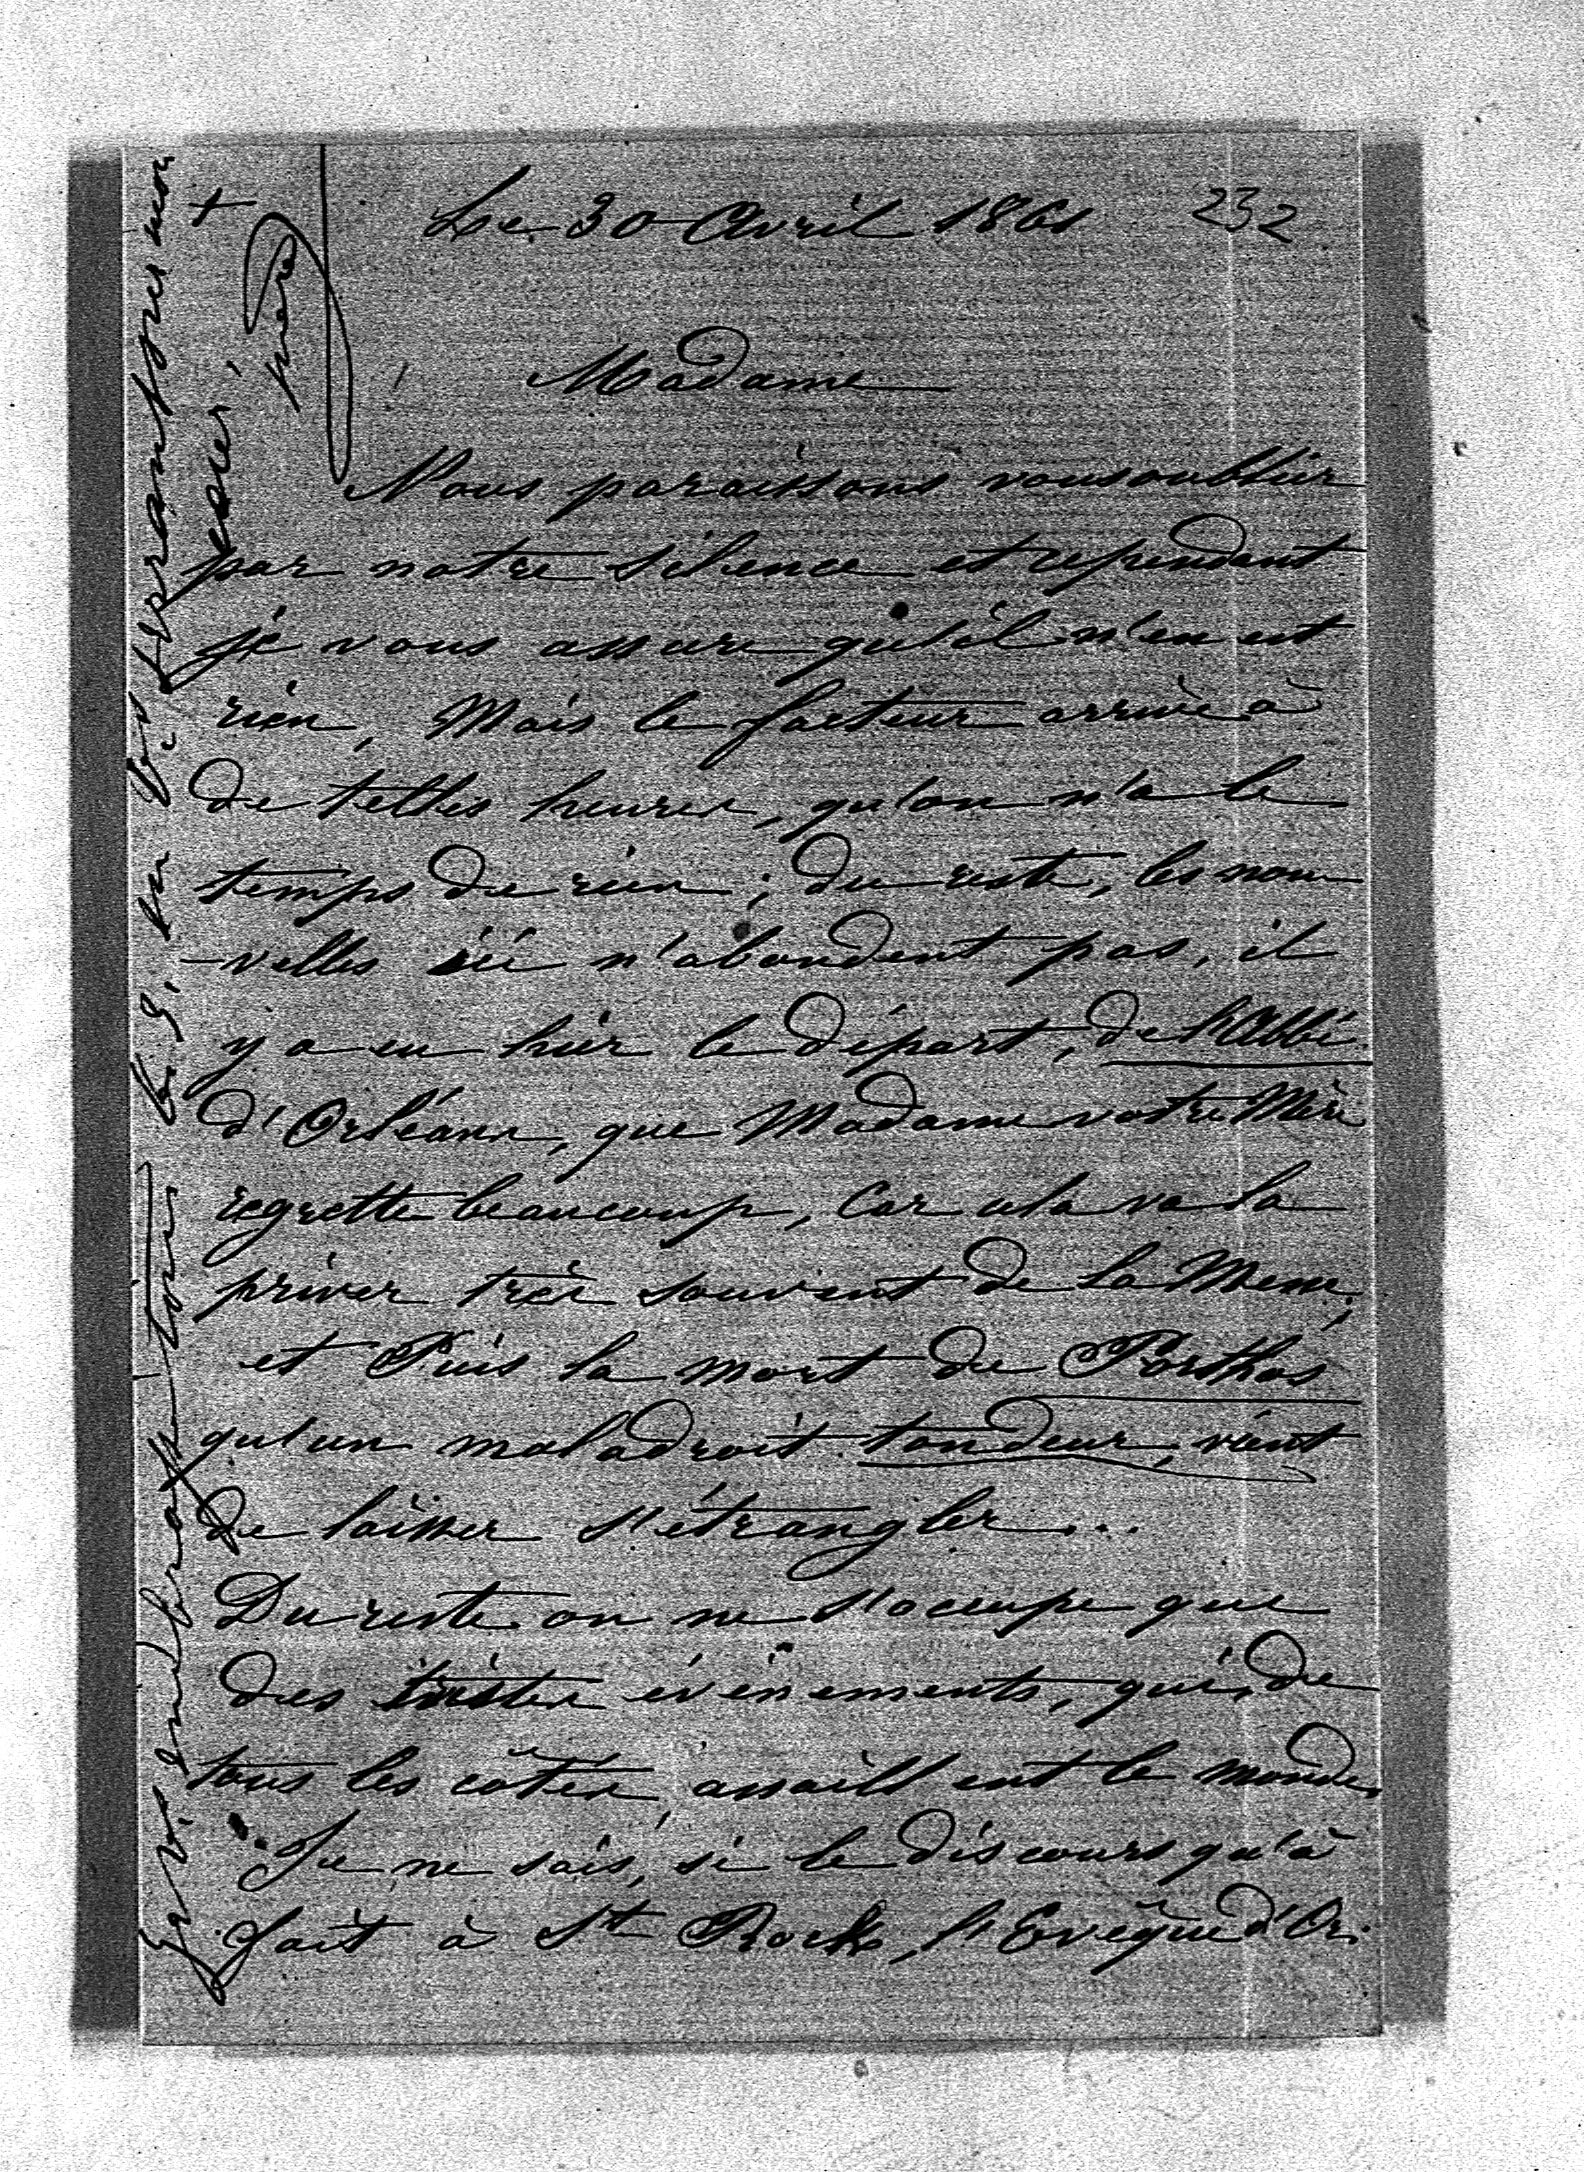 Le 30 Avril 1861
232
Madame
Nous paraissons vous oublier
par notre silence et cependant
je vous assure qu'il n'en est
rien, Mais le facteur arrive à
de telles heures, qu'on n'a le
temps de rien ; du reste, les nou
-velles ici n'abondent pas, il
y a eu hier le départ, de l'Abbé
d'Orléans, que Madame votre Mère
regrette beaucoup, Car cela va la
priver très souvent de La Messe,
et Puis la mort de Porthos
qu'un maladroit tondeur, vient
de laisser s'étrangler...
Du reste on ne s'occupe que
des tristes évènements, qui, de
tous les côtés, assaillent le monde,
Je ne sais, si le discours qu'à
fait à St Roch, l'Evêque d'Or.